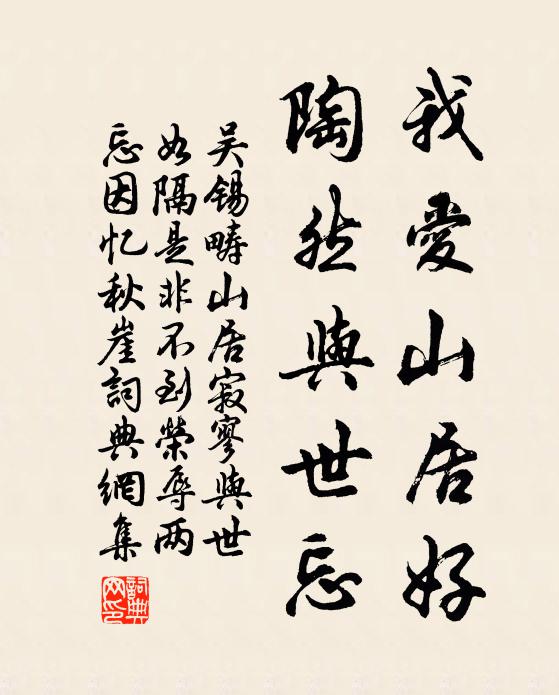 我愛山居好
陶然與世忘
吴锡畴山居寂寥與世
如隔是非不到榮辱两
忘因忆秋崖詞典網集
詞典
网印